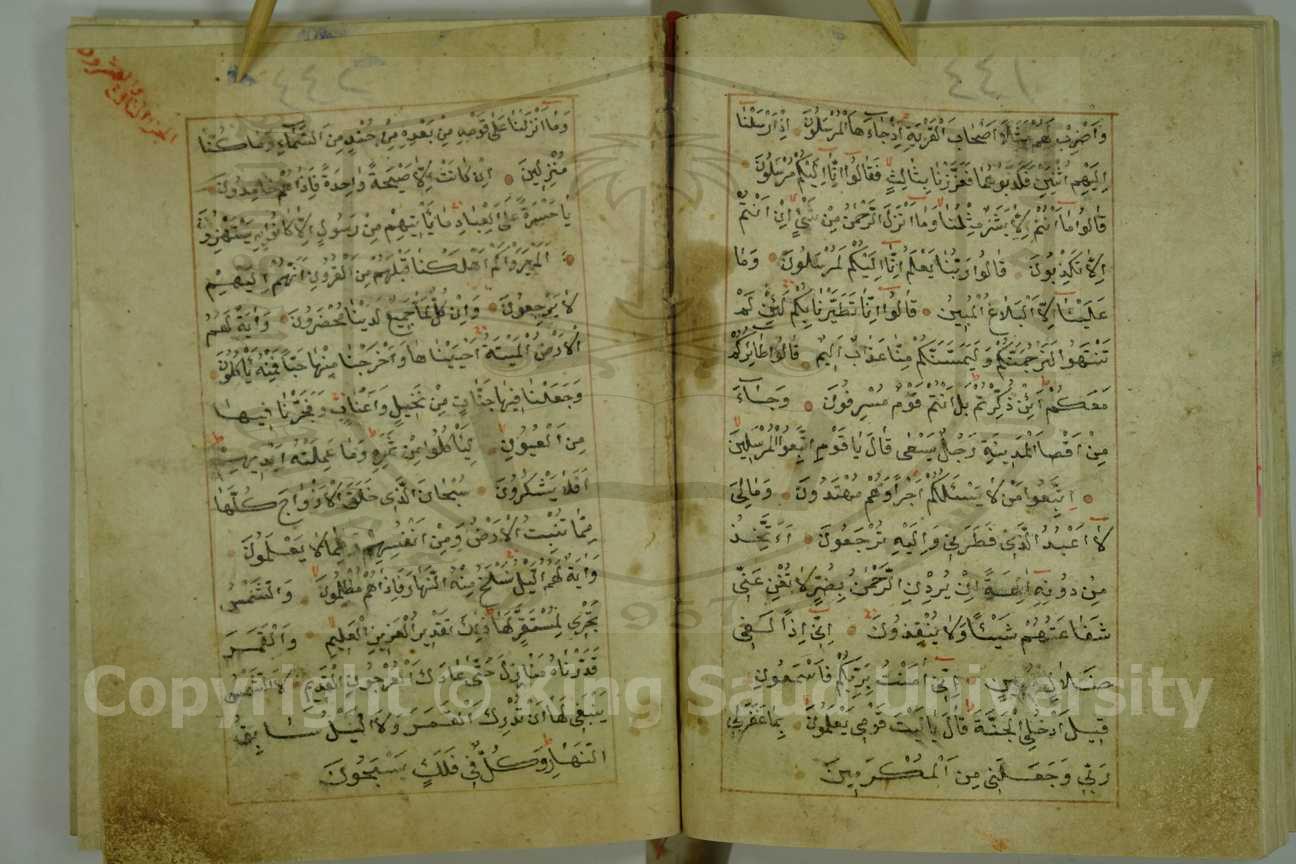 ٤٤١
وَاَضْرِبْ لَهُمْ مَثَلًا اَصْحَابَ الْقَرْيَةِ اِذْ جَاءَهَا الْمُرْسَلُونَ اِذْ اَرْسَلْنَا
اِلَيْهِمُ اثْنَيْنِ فَكَذَّبُوهُمَا فَعَزَّزْنَا بِثَالِثٍ فَقَالُوا اِنَّا اِلَيْكُمْ مُرْسَلُونَ
قَالُوا مَا اَنْتُمْ اِلَّا بَشَرٌ مِثْلُنَا وَمَا اَنْزَلَ الرَّحْمٰنُ مِنْ شَيْءٍ اِنْ اَنْتُمْ
اِلَّا تَكْذِبُونَ قَالُوا رَبُّنَا يَعْلَمُ اِنَّا اِلَيْكُمْ لَمُرْسَلُونَ وَمَا
عَلَيْنَا اِلَّا الْبَلَاغُ الْمُبِينُ قَالُوا اِنَّا تَطَيَّرْنَا بِكُمْ لَئِنْ لَمْ
تَنْتَهُوا لَنَرْجُمَنَّكُمْ وَلَيَمَسَّنَّكُمْ مِنَّا عَذَابٌ اَلِيمٌ قَالُوا طَائِرُكُمْ
مَعَكُمْ اَئِنْ ذُكِّرْتُمْ بَلْ اَنْتُمْ قَوْمٌ مُسْرِفُونَ وَجَاءَ
مِنْ اَقْصَا الْمَدِينَةِ رَجُلٌ يَسْعٰى قَالَ يَا قَوْمِ اتَّبِعُوا الْمُرْسَلِينَ
اِتَّبِعُوا مَنْ لَا يَسْئَلُكُمْ اَجْرًا وَهُمْ مُهْتَدُونَ وَمَا لِيَ
لَا اَعْبُدُ الَّذِي فَطَرَنِي وَاِلَيْهِ تُرْجَعُونَ ءَاَتَّخِذُ
مِنْ دُونِهِ اٰلِهَةً اِنْ يُرِدْنِ الرَّحْمٰنُ بِضُرٍّ لَا تُغْنِ عَنِّي
شَفَاعَتُهُمْ شَيْئًا وَلَا يُنْقِذُونَ اِنِّي اِذًا لَفِي
ضَلَالٍ مُبِينٍ اِنِّي اٰمَنْتُ بِرَبِّكُمْ فَاسْمَعُونِ
قِيلَ ادْخُلِ الْجَنَّةَ قَالَ يَا لَيْتَ قَوْمِي يَعْلَمُونَ بِمَا غَفَرَ لِي
رَبِّي وَجَعَلَنِي مِنَ الْمُكْرَمِينَ
٤٤٢
الجزء الثالث والعشرون
وَمَا اَنْزَلْنَا عَلٰى قَوْمِهِ مِنْ بَعْدِهِ مِنْ جُنْدٍ مِنَ السَّمَاءِ وَمَا كُنَّا
مُنْزِلِينَ اِنْ كَانَتْ اِلَّا صَيْحَةً وَاحِدَةً فَاِذَا هُمْ خَامِدُونَ
يَا حَسْرَةً عَلَى الْعِبَادِ مَا يَأْتِيهِمْ مِنْ رَسُولٍ اِلَّا كَانُوا بِهِ يَسْتَهْزِؤُنَ
اَلَمْ يَرَوْا كَمْ اَهْلَكْنَا قَبْلَهُمْ مِنَ الْقُرُونِ اَنَّهُمْ اِلَيْهِمْ
لَا يَرْجِعُونَ وَاِنْ كُلٌّ لَمَّا جَمِيعٌ لَدَيْنَا مُحْضَرُونَ وَاٰيَةٌ لَهُمُ
الْاَرْضُ الْمَيْتَةُ اَحْيَيْنَاهَا وَاَخْرَجْنَا مِنْهَا حَبًّا فَمِنْهُ يَأْكُلُونَ
وَجَعَلْنَا فِيهَا جَنَّاتٍ مِنْ نَخِيلٍ وَاَعْنَابٍ وَفَجَّرْنَا فِيهَا
مِنَ الْعُيُونِ لِيَأْكُلُوا مِنْ ثَمَرِهِ وَمَا عَمِلَتْهُ اَيْدِيهِمْ
اَفَلَا يَشْكُرُونَ سُبْحَانَ الَّذِي خَلَقَ الْاَزْوَاجَ كُلَّهَا
مِمَّا تُنْبِتُ الْاَرْضُ وَمِنْ اَنْفُسِهِمْ وَمِمَّا لَا يَعْلَمُونَ
وَاٰيَةٌ لَهُمُ الَّيْلُ نَسْلَخُ مِنْهُ النَّهَارَ فَاِذَا هُمْ مُظْلِمُونَ وَالشَّمْسُ
تَجْرِي لِمُسْتَقَرٍّ لَهَا ذٰلِكَ تَقْدِيرُ الْعَزِيزِ الْعَلِيمِ وَالْقَمَرَ
قَدَّرْنَاهُ مَنَازِلَ حَتّٰى عَادَ كَالْعُرْجُونِ الْقَدِيمِ لَا الشَّمْسُ
يَنْبَغِي لَهَا اَنْ تُدْرِكَ الْقَمَرَ وَلَا الَّيْلُ سَابِقُ
النَّهَارِ وَكُلٌّ فِي فَلَكٍ يَسْبَحُونَ
Copyright © King Saud University
1957